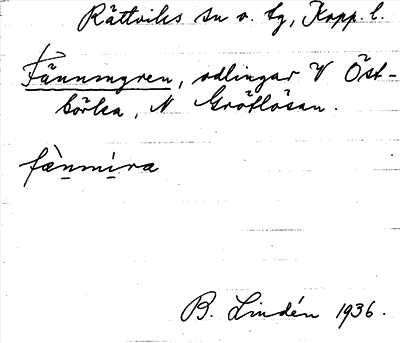 Rättviks sn o. tg, Kopp. l.
Fännmyren, odlingar V Öst-
börka, N Gröttlösan.
fæ̀nmi̠ra
B. Lindén 1936.